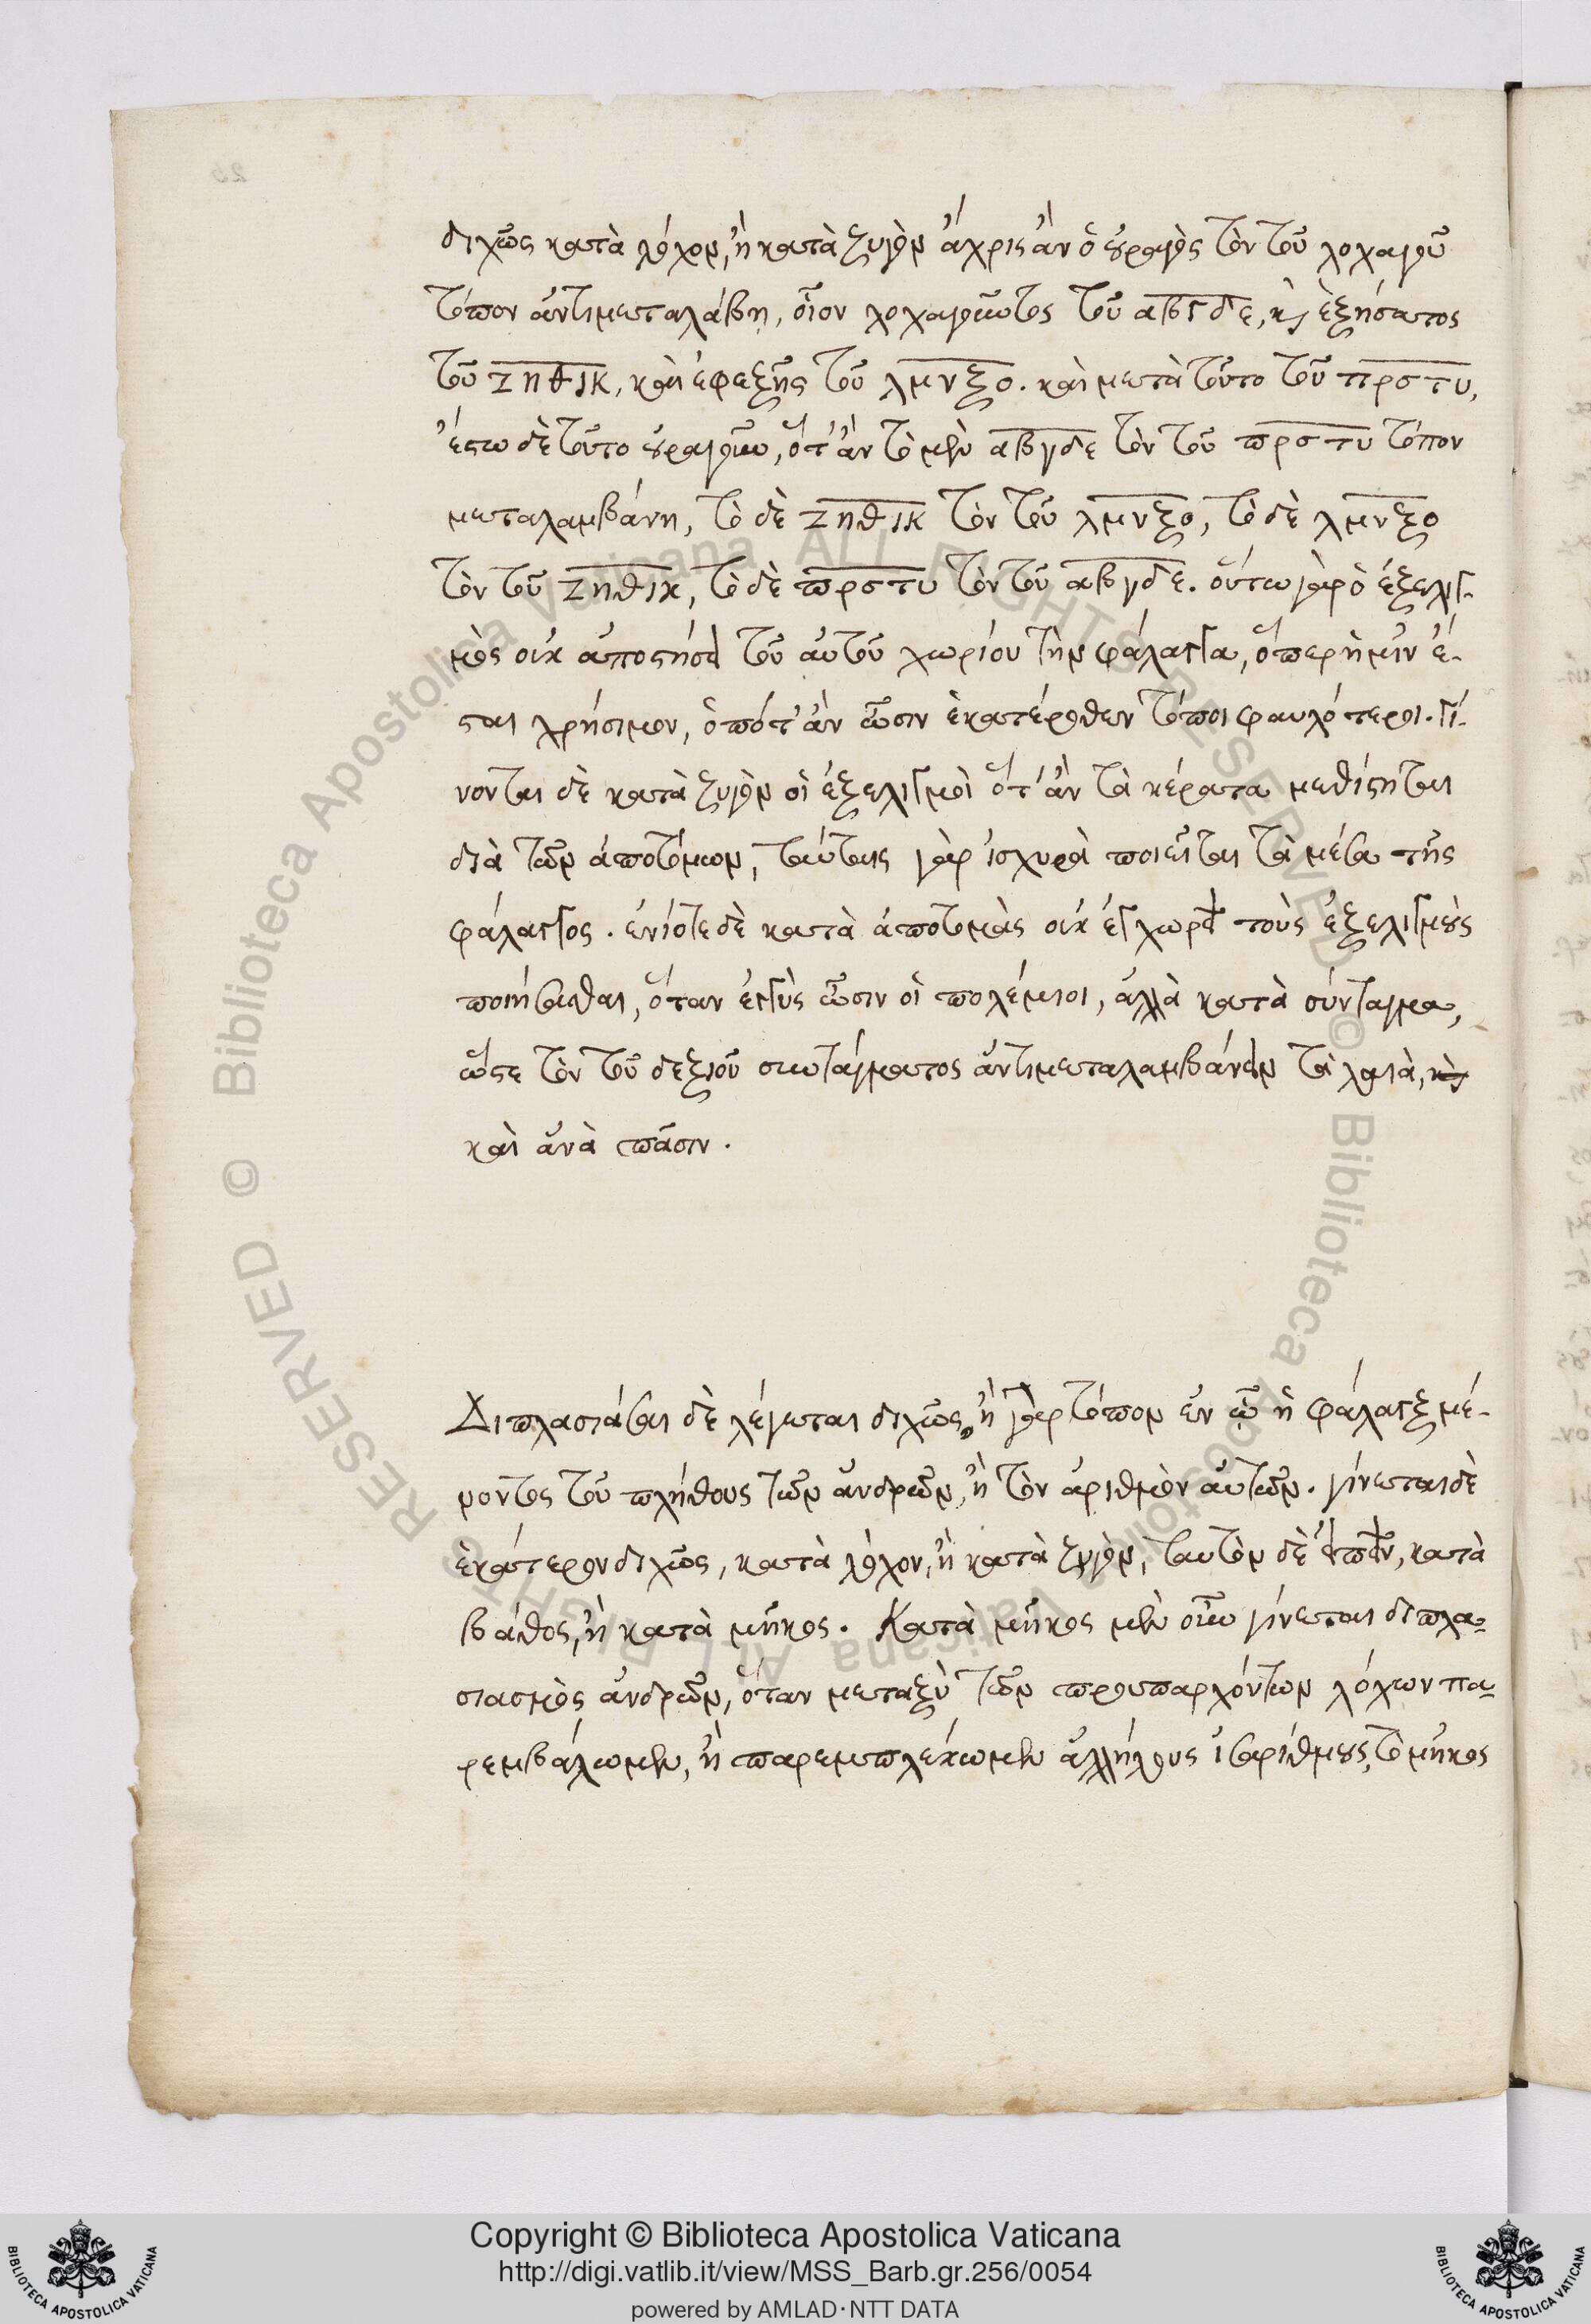 διχῶς κατὰ λόχον, ἢ κατὰ ζυγὸν ἄχρις ἂν ὁ οὐραγὸς τὸν τοῦ λοχαγοῦ
τόπον ἀντιμεταλάβῃ, οἷον λοχαγοῦντος τοῦ αβγδε, καὶ ἑξήσατος
τοῦ ζηθικ, καὶ ἐφεξῆς τοῦ λμνξο. καὶ μετὰ τοῦτο τοῦ πρστυ,
ἔστω δὲ τοῦτο οὐραγοῦν, ὅτ' ἂν τὸ μὲν αβγδε τὸν τοῦ πρστυ τόπον
μεταλαμβάνη, τὸ δὲ ζηθικ τὸν τοῦ λμνξο, τὸ δὲ λμνξο
τὸν τοῦ ζηθικ, τὸ δὲ πρστυ τὸν τοῦ αβγδε. οὕτω γὰρ ὁ ἐξελιγ-
μὸς οὐκ ἀποστήσει τοῦ αὐτοῦ χωρίου τὴν φάλαγγα, ὅπερ ἡμῖν ἔ-
σται χρήσιμον, ὁπότ' ἂν ὦσιν ἑκατέρωθεν τόποι φαυλότεροι. γί-
νονται δὲ κατὰ ζυγὸν οἱ ἐξελιγμοὶ ὅτ' ἂν τὰ κέρατα μεθίστηται
διὰ τῶν ἀποτόμων, ταύταις γὰρ ἰσχυρὰ ποιεῖται τὰ μέσα τῆς
φάλαγγος. ἐνίοτε δὲ κατὰ ἀποτομὰς οὐκ ἐγχωρεῖ τοὺς ἐξελιγμοὺς
ποιήσασθαι, ὅταν ἐγγὺς ὦσιν οἱ πολέμιοι, ἀλλὰ κατὰ σύνταγμα,
ὥστε τὸν τοῦ δεξιοῦ συντάγματος ἀντιμεταλαμβάνειν τὰ λαιὰ, καὶ
καὶ ἀνὰ πᾶσιν.
Διπλασιάσαι δὲ λέγεται διχῶς, ἢ γὰρ τόπον ἐν ᾧ ἡ φάλαγξ μέ-
νοντος τοῦ πλήθους τῶν ἀνδρῶν, ἢ τὸν ἀριθμὸν αὐτῶν. γίνεται δὲ
ἑκάτερον διχῶς, κατὰ λόχον, ἢ κατὰ ζυγὸν, ταυτὸν δὲ εἰπεῖν, κατὰ
βάθος, ἢ κατὰ μῆκος. Κατὰ μῆκος μὲν οὖν γίνεται διπλα-
σιασμὸς ἀνδρῶν, ὅταν μεταξὺ τῶν προυπαρχόντων λόχων πα-
ρεμβάλωμεν, ἢ παρεμπλέκωμεν ἀλλήλους ἰσαρίθμους, τὸ μῆκος
Copyright © Biblioteca Apostolica Vaticana
http://digi.vatlib.it/view/MSS_Barb.gr.256/0054
powered by AMLAD·NTT DATA